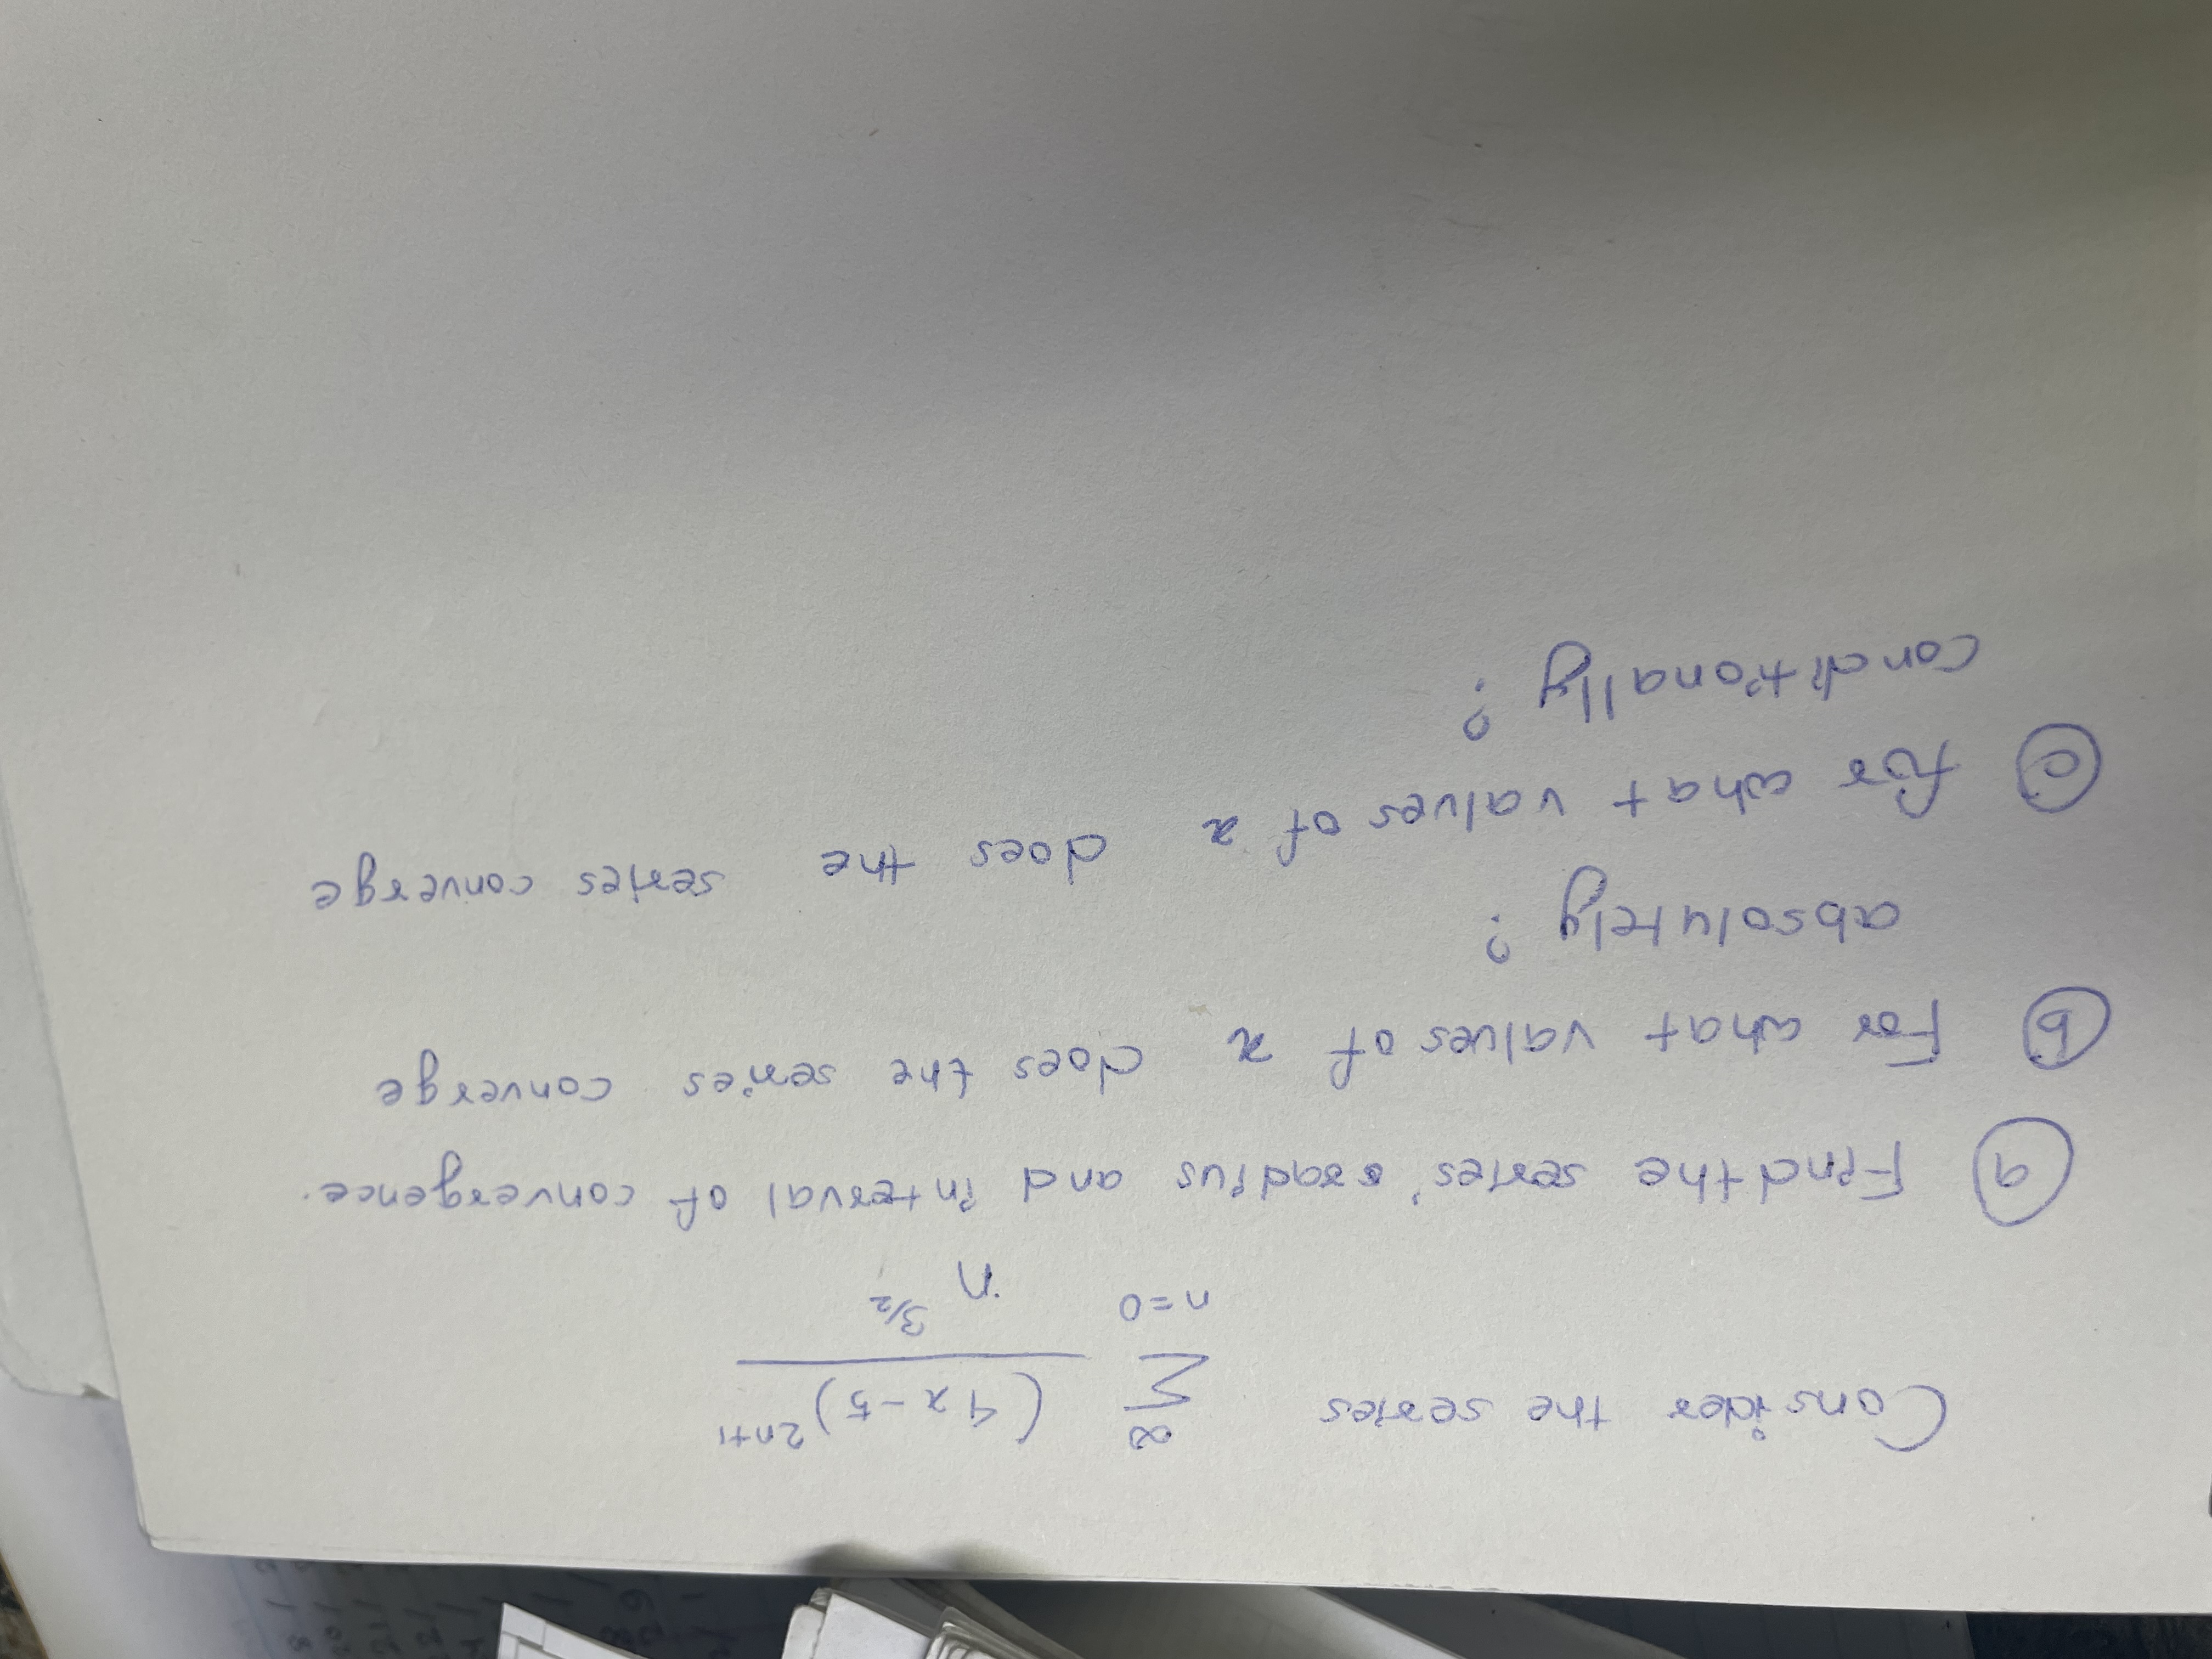 Consider the series ∞ Σ n=0 (4x-5)^2n+1 / n^3/2
ⓐ Find the series' radius and interval of convergence.
ⓑ For what values of x does the series converge
absolutely?
ⓒ for what values of x does the series converge
conditionally?